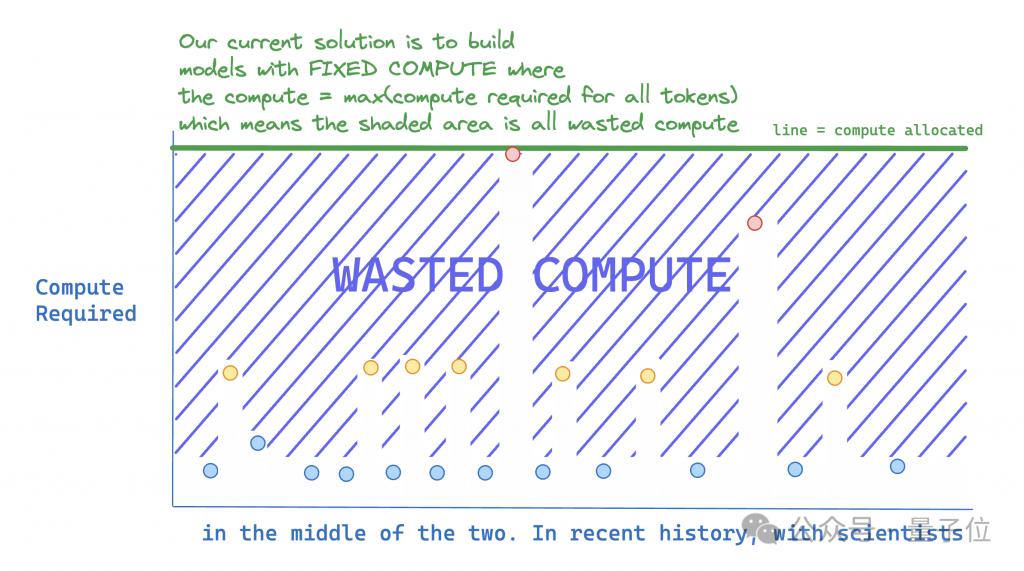 Our current solution is to build
models with FIXED COMPUTE where
the compute = max(compute required for all tokens)
which means the shaded area is all wasted compute
line = compute allocated
WASTED COMPUTE
Compute
Required
in the middle of the two. In recent history, with scientists
公众号 · 量子位